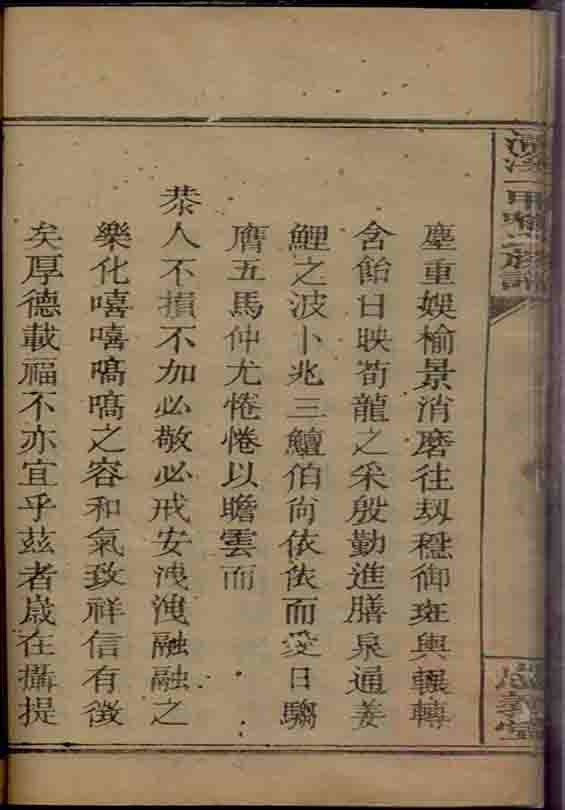 塵重娛榆景消磨往刼穩御斑輿輾轉
含飴日映荀龍之采殷勤進膳泉通姜
鯉之波卜兆三鱣伯尚依依而愛日騶
膺五馬仲尤惓惓以瞻雲而
恭人不損不加必敬必戒安洩洩融融之
樂化嘻嘻嗃嗃之容和氣致祥信有徵
矣厚德載福不亦宜乎茲者歲在攝提